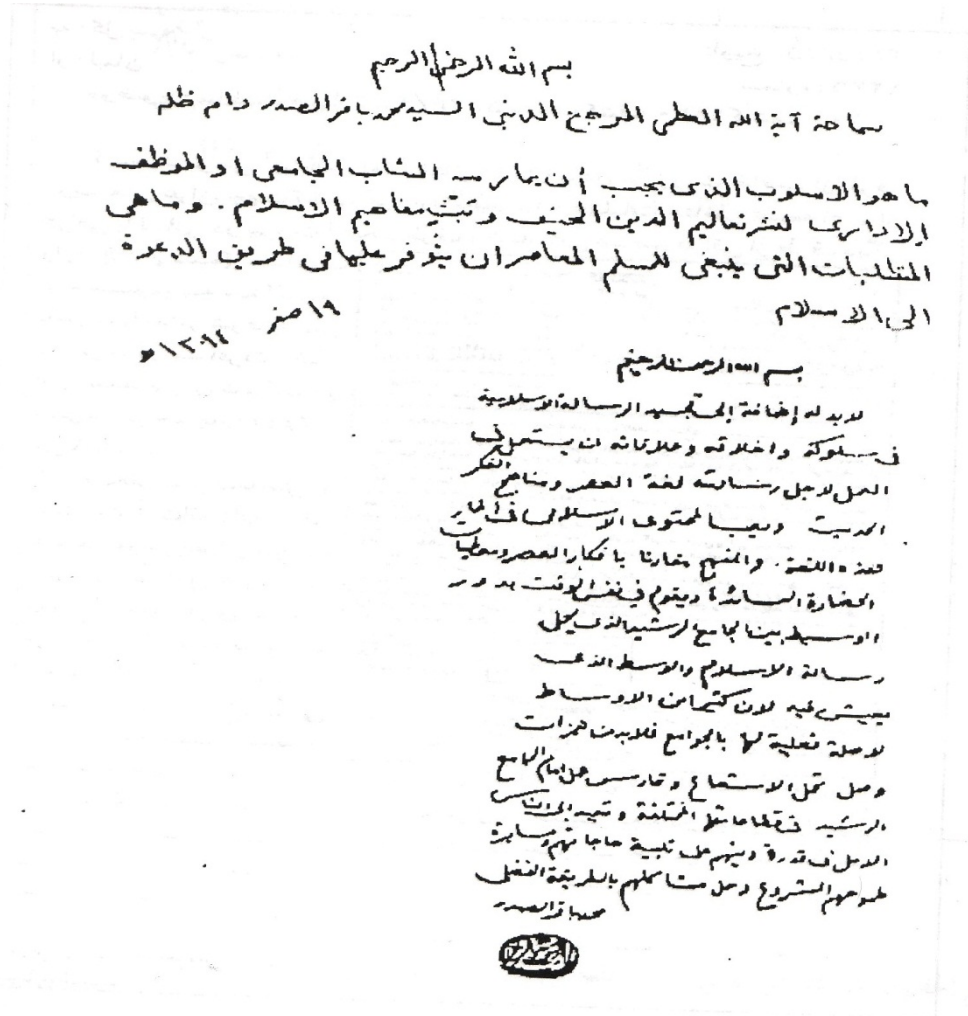 بسم الله الرحمن الرحيم
سماحة آية الله العظمى المرجع الديني السيد محمد باقر الصدر دام ظله
ما هو الاسلوب الذي يجب أن يمارسه الشاب الجامعي او الموظف
الاداري لنشر تعاليم الدين الحنيف وتبث مفاهيم الاسلام. وماهي
المتطلبات التي ينبغي للمسلم المعاصر ان يتوفر عليها في طريق الدعوة
الى الاسلام
١٩ صفر ١٣٩٤ هـ
بسم الله الرحمن الرحيم
لابد له إضافة إلى تجسيد الرسالة الاسلامية
في سلوكه واخلاقه وعلاقاته ان يستعمل في
العمل لاجل رسالته لغة العصر ومناهج الفكر
الحديث المحتوى الاسلامي في اطار
هذه اللغة. والمنهج مقارنا بافكار العصر ومعطيات
الحضارة السائدة ويقوم في نفس الوقت بدور
الوسيط بين الجامع الرشيد الذي يحمل
رسالة الاسلام والوسط الذي
يعيش فيه لان كثيرا من الاوساط
لا صلة فعلية لها بالجوامع فلابد من همزات
وصل تحمل الاشعاع وتمارس عمل امام الجامع
الرشيد في قطاعاتها المختلفة وتعيد إلى الناس
الامل في قدرة دينهم على تلبية حاجاتهم ومسايرة
طموحهم المشروع وحل مشاكلهم بالطريقة الفضلى
محمد باقر الصدر